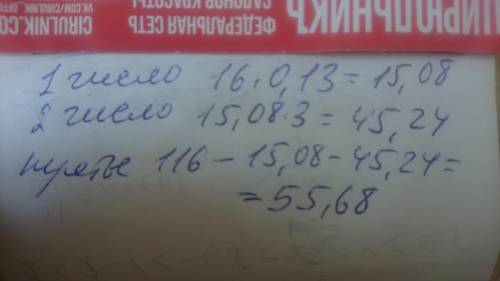 VK.COM/CIRULNIK_OFFI
CIRULNIK.CO
САЛОНОВ КРАСОТЫ
ФЕДЕРАЛЬНАЯ СЕТЬ
ЦИРЮЛЬНИКЪ
1 число 16·0,13=15,08
2 число 15,08·3=45,24
третье 116-15,08-45,24=
=55,68